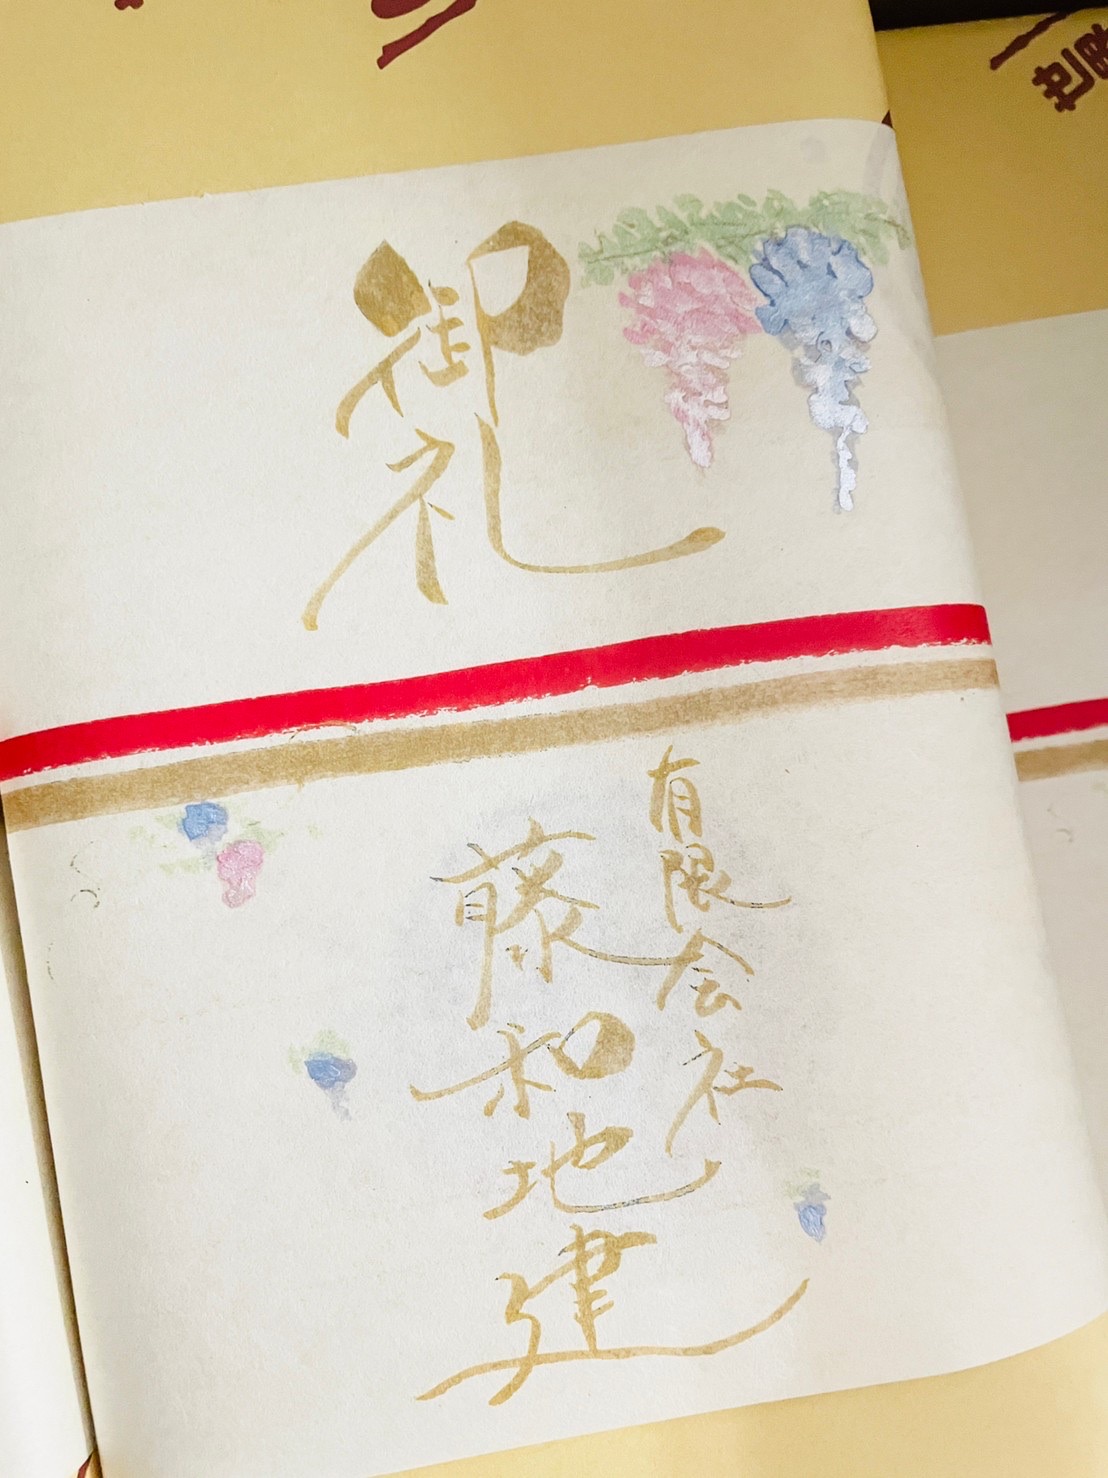 御礼
有限会社
藤和地建